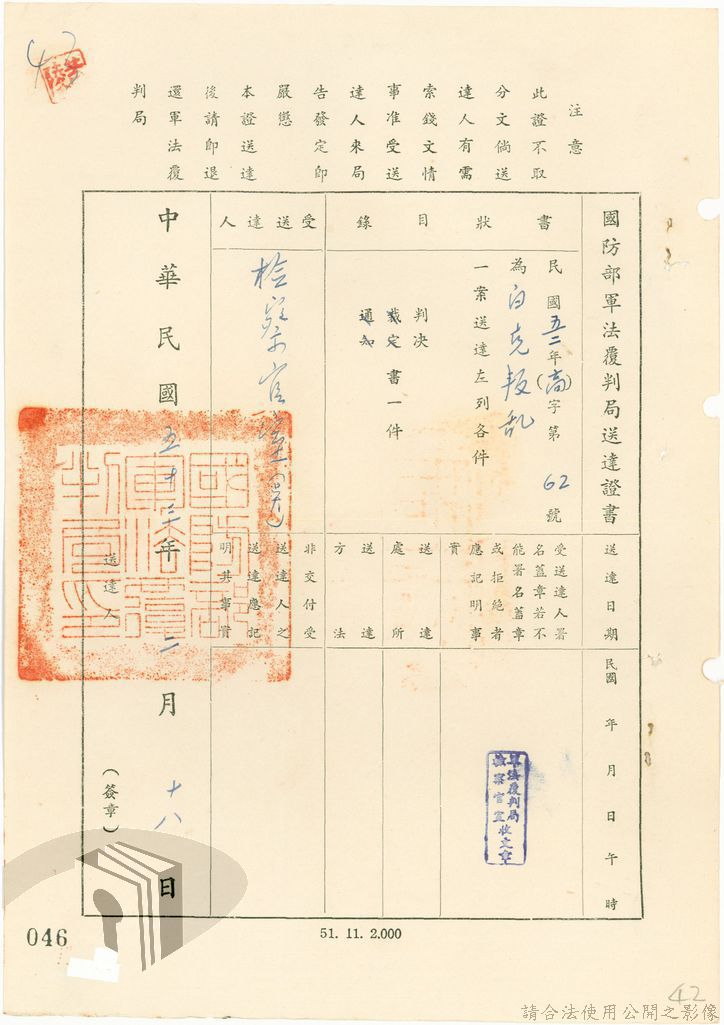 注意
此證不取
分文倘送
達人有需
索錢文情
事准受送
達人來局
告發定卽
嚴懲
本證送達
後請卽退
還軍法覆
判局
國防部軍法覆判局送達證書
送達日期
民國 年 月 日 午 時
書狀目錄
民國五二年(高)字第 62 號
為白克叛乱
一案送達左列各件
判决
裁定書一件
通知
受送達人
檢察官
受送達人署
名蓋章若不
能署名蓋章
或拒絕者
應記明事
實
送達處所
送達方法
非交付受
送達人之
送達應記
明其事實
中華民國五十三年二月十八日
送達人
(簽章)
國防部軍法覆判局印
軍法覆判局
檢察官室收文章
42
046
51. 11. 2.000
42
請合法使用公開之影像